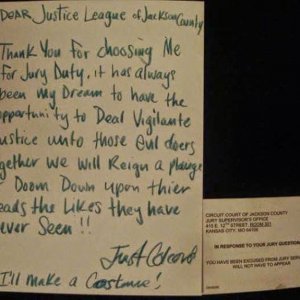 DEAR Justice League of Jackson County
Thank You For choosing Me
For Jury Duty, it has always
been my Dream to have the
opportunity to Deal Vigilante
ustice unto those evil doers
ogether We Will Reign a
Doom Down upon thier
eads the Likes they have
ever Seen!!
Just
I'll make a Costume!
CIRCUIT COURT OF JACKSON COUNTY
JURY SUPERVISOR'S OFFICE
415 E. 12TH STREET, ROOM
KANSAS CITY, MO 64106
IN RESPONSE TO YOUR JURY QUESTION
YOU HAVE BEEN EXCUSED FROM JURY SERV
WILL NOT HAVE TO APPEAR